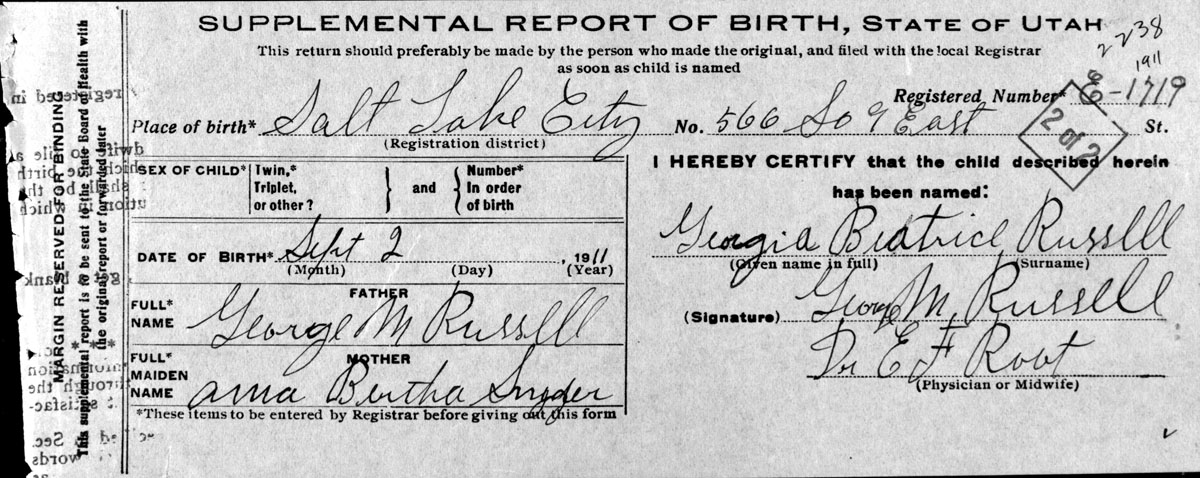 SUPPLEMENTAL REPORT OF BIRTH, STATE OF UTAH
2238
1911
This return should preferably be made by the person who made the original, and filed with the local Registrar
as soon as child is named
Registered Number* E-1719
2 of 2
Place of birth* Salt Lake City No. 566 So 9 East St.
(Registration district)
SEX OF CHILD* Twin,* Triplet, or other? and Number* In order of birth
DATE OF BIRTH* Sept 2, 1911
(Month) (Day) (Year)
FATHER
FULL* NAME George M Russell
MOTHER
FULL* MAIDEN NAME Bertha Snyder
*These items to be entered by Registrar before giving out this form
I HEREBY CERTIFY that the child described herein
has been named:
Georgia Beatrice Russell
(Given name in full) (Surname)
(Signature) George M. Russell
Dr E F Root
(Physician or Midwife)
MARGIN RESERVED FOR BINDING
This supplemental report is to be sent to the State Board of Health with
the original report or forwarded later